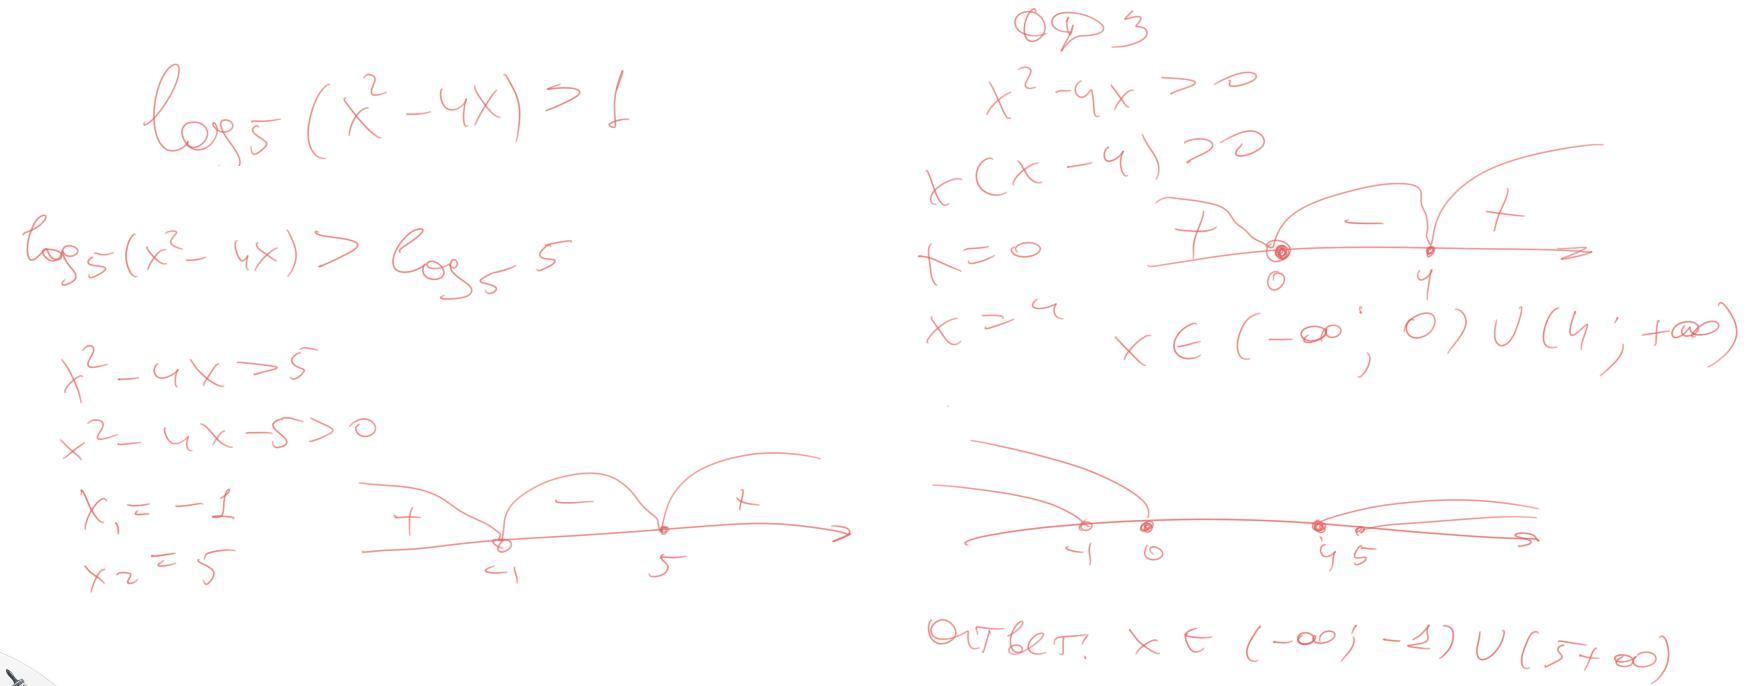 log₅(x² - 4x) > 1
log₅(x² - 4x) > log₅ 5
x² - 4x > 5
x² - 4x - 5 > 0
x₁ = -1
x₂ = 5
+ - +
-1 5
ОДЗ
x² - 4x > 0
x(x - 4) > 0
x = 0
x = 4
+ - +
0 4
x ∈ (-∞; 0) ∪ (4; +∞)
-1 0 4 5
Ответ: x ∈ (-∞; -1) ∪ (5 +∞)